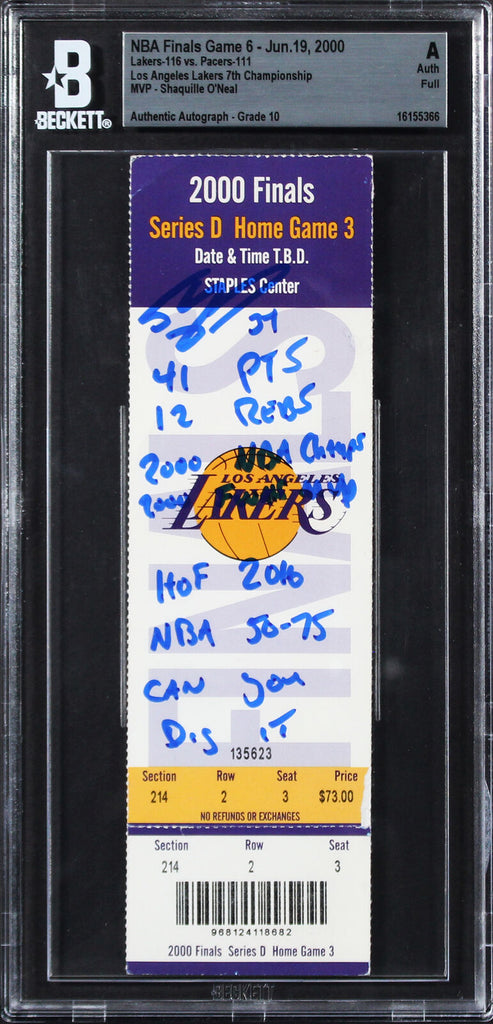 NBA Finals Game 6 - Jun.19, 2000
Lakers-116 vs. Pacers-111
Los Angeles Lakers 7th Championship
MVP - Shaquille O'Neal
Authentic Autograph - Grade 10
A
Auth
Full
16155366
B
BECKETT®
2000 Finals
Series D Home Game 3
Date & Time T.B.D.
STAPLES Center
34
41 PTS
12 REBS
2000 NBA Champs
2000 Finals MVP
LOS ANGELES
LAKERS
HoF 2016
NBA 50-75
CAN you
Dig iT
135623
Section Row Seat Price
214 2 3 $73.00
NO REFUNDS OR EXCHANGES
Section Row Seat
214 2 3
968124118682
2000 Finals Series D Home Game 3
BECKETT